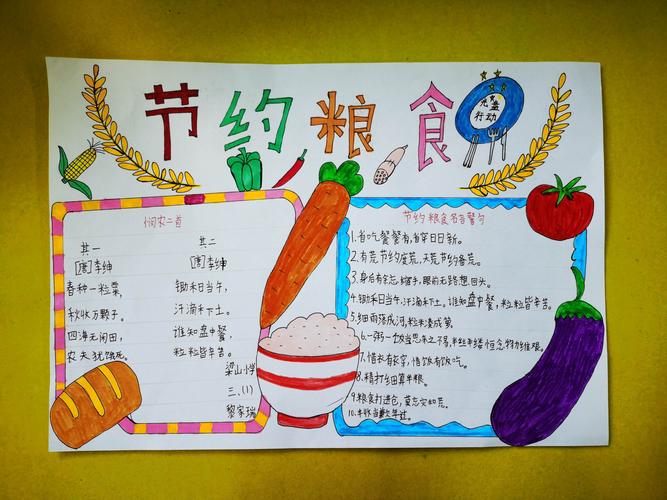 节约粮食
光盘
行动
悯农二首
其一
[唐]李绅
春种一粒粟,
秋收万颗子。
四海无闲田,
农夫犹饿死。
其二
[唐]李绅
锄禾日当午,
汗滴禾下土。
谁知盘中餐,
粒粒皆辛苦。
梁山
三、(1)
黎家瑞
节约粮食名言警句
1.省吃餐餐有,省穿日日新。
2.有荒节约度荒,无荒节约备荒。
3.身后有余忘缩手,眼前无路想回头。
4.锄禾日当午,汗滴禾下土。谁知盘中餐,粒粒皆辛苦。
5.细雨落成河,粒米凑成箩。
6.一粥一饭当思来之不易,半丝半缕恒念物力维艰。
7.惜衣有衣穿,惜饭有饭吃。
8.精打细算
9.粮食打进仓,莫忘灾和荒。
10.丰收